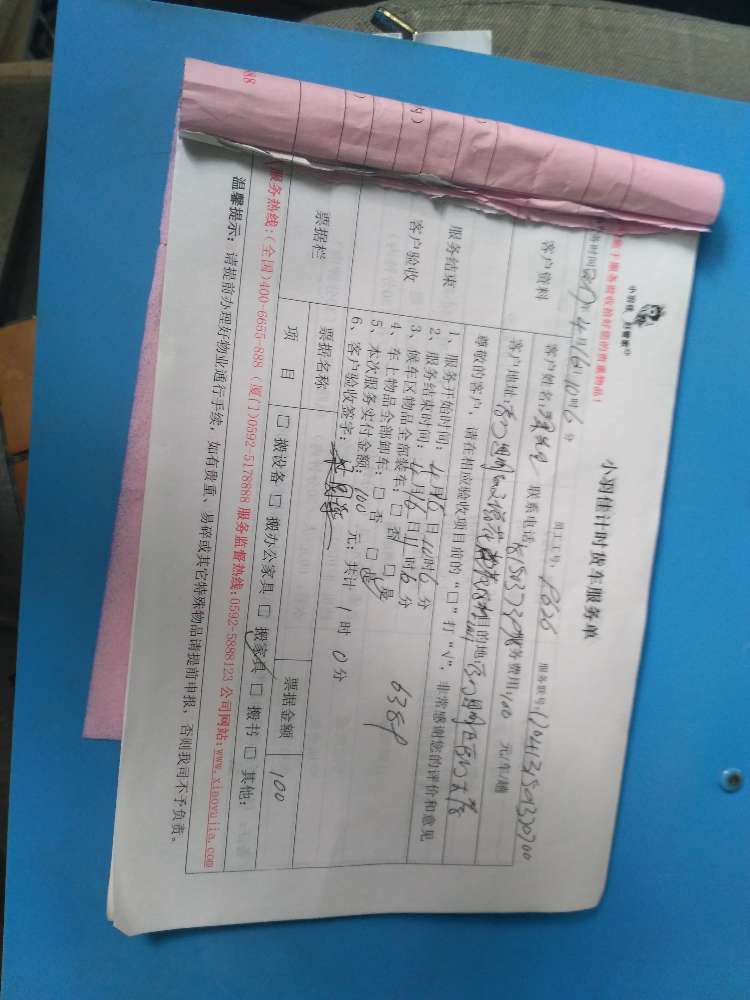 小羽佳 好管家®
小羽佳计时货车服务单
便于服务验收前好您的贵重物品！
员工工号：
服务联号：
务时间 4月16日10时6分
客户资料
客户姓名： 联系电话： 服务费用：100 元/车/趟
客户地址： 目的地
尊敬的客户，请在相应验收项目前的“□”打“√”，非常感谢您的评价和意见
服务结束
客户验收
1、服务开始时间：4月16日10时6分
2、服务结束时间：4月16日11时6分
3、候车区物品全部装车：□ 否 □ 是
4、车上物品全部卸车：□ 否 □ 是
5、本次服务实付金额：100 元；共计 1 时 0 分
6、客户验收签字：
票据栏
票据名称
票据金额
100
项 目
□ 搬设备 □ 搬办公家具 □ 搬家具 □ 搬书 □ 其他：
服务热线：(全国)400-6655-888 (厦门)0592-5178888 服务监督热线：0592-5888123 公司网站：www.xiaoyujia.com
温馨提示：请提前办理好物业通行手续，如有贵重、易碎或其它特殊物品请提前申报，否则我司不予负责。
88